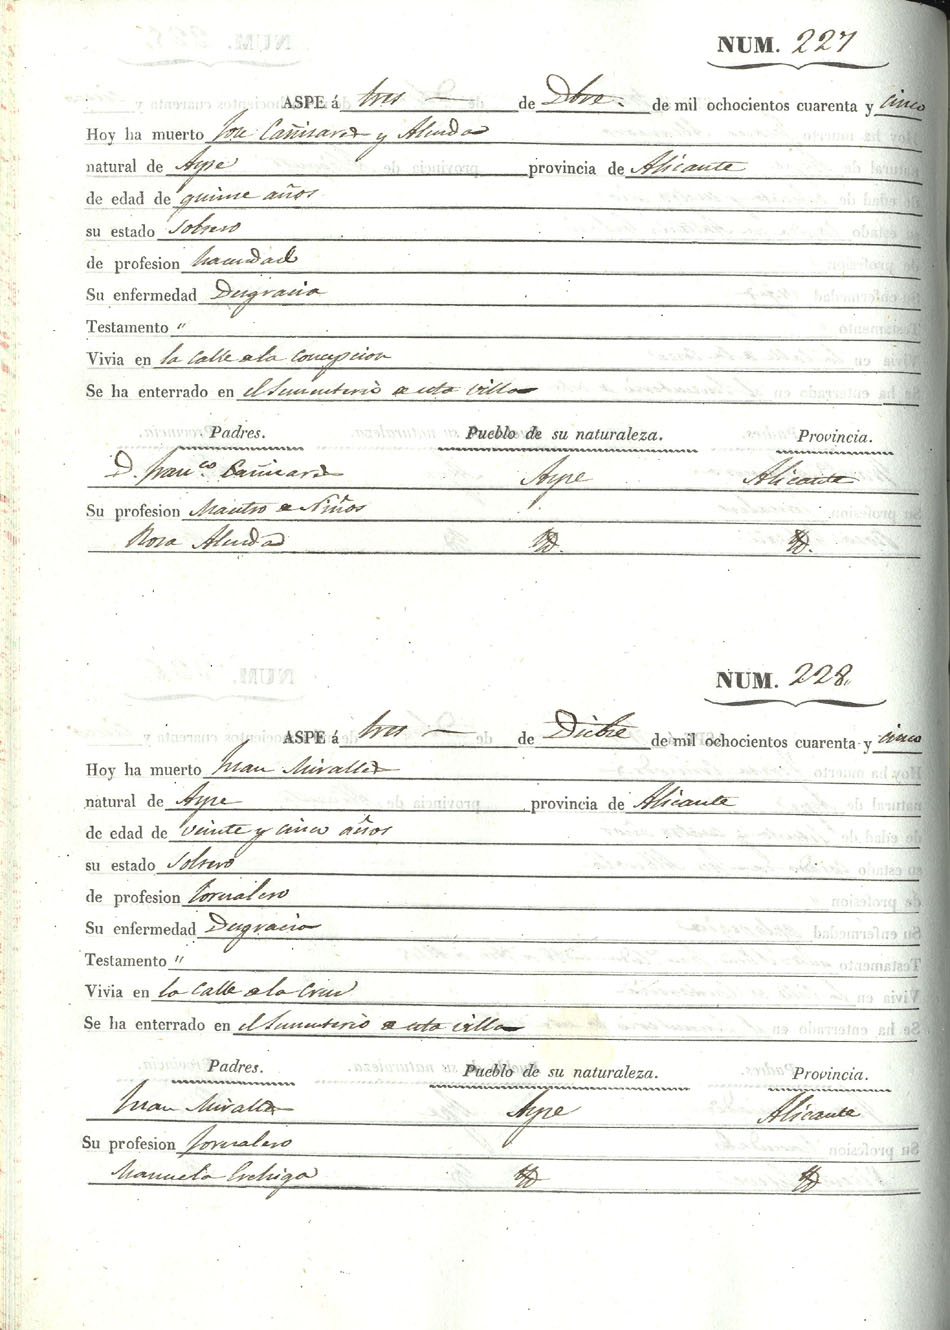 NUM. 227
ASPE á tres — de Dbre. de mil ochocientos cuarenta y cinco
Hoy ha muerto José Cañizares y Almodar
natural de Aspe provincia de Alicante
de edad de quince años
su estado soltero
de profesion
Su enfermedad Desgracia
Testamento "
Vivia en la Calle de la Concepcion
Se ha enterrado en el Sementerio de esta villa
Padres. Pueblo de su naturaleza. Provincia.
D. Franco. Cañizares Aspe Alicante
Su profesion Maestro de Niños
Rosa Id. Id.
NUM. 228.
ASPE á tres — de Dicbre de mil ochocientos cuarenta y cinco
Hoy ha muerto Juan Miralles
natural de Aspe provincia de Alicante
de edad de veinte y cinco años
su estado soltero
de profesion Jornalero
Su enfermedad Desgracia
Testamento "
Vivia en la Calle de la Cruz
Se ha enterrado en el Sementerio de esta villa
Padres. Pueblo de su naturaleza. Provincia.
Juan Miralles Aspe Alicante
Su profesion Jornalero
Manuela Id. Id.